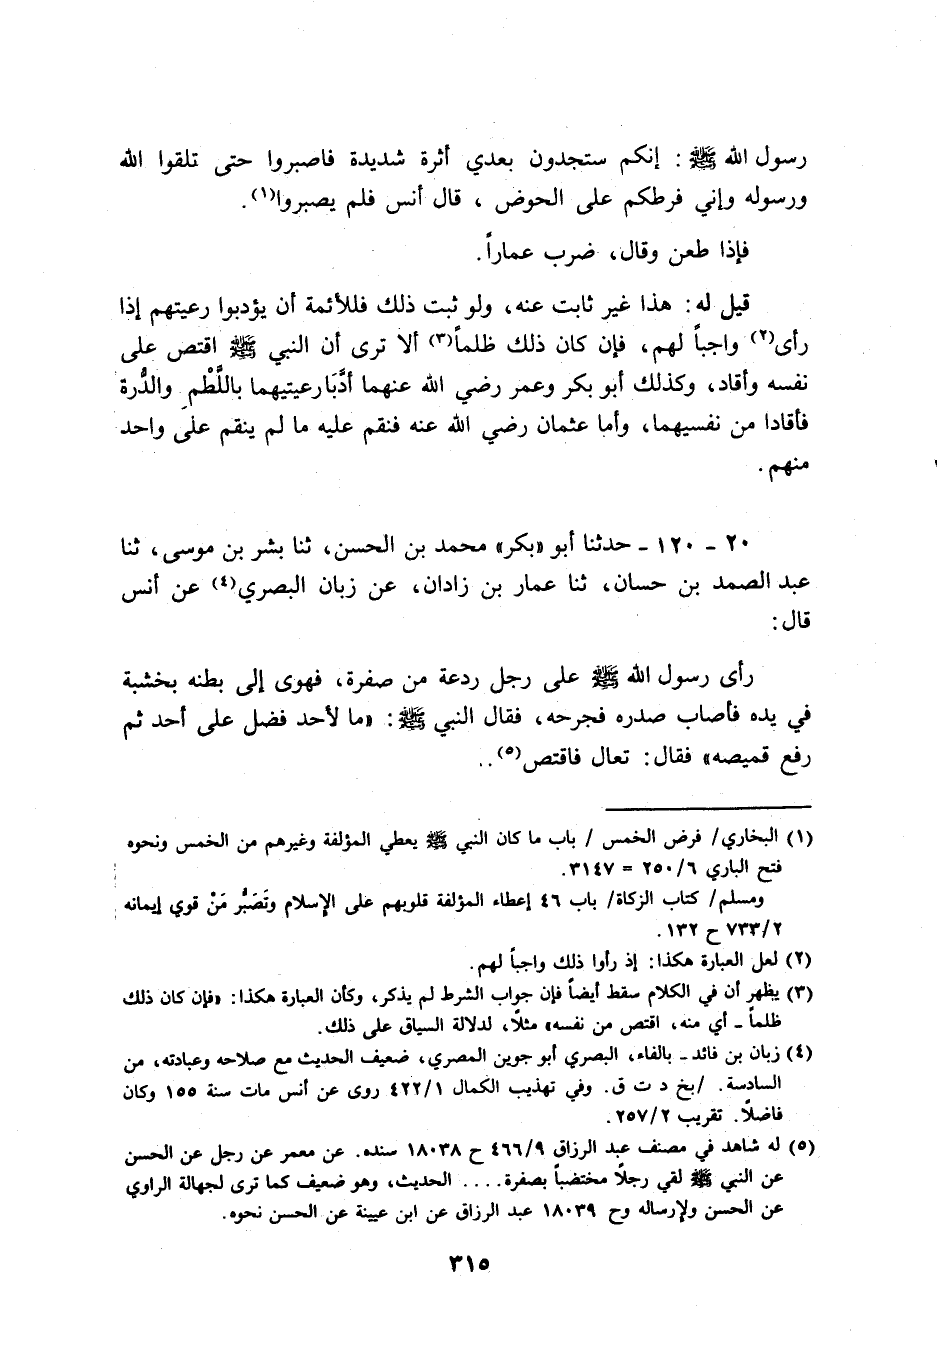 رسول الله ﷺ : إنكم ستجدون بعدي أثرة شديدة فاصبروا حتى تلقوا الله
ورسوله وإني فرطكم على الحوض ، قال أنس فلم يصبروا(١).
فإذا طعن وقال، ضرب عماراً.
قيل له: هذا غير ثابت عنه، ولو ثبت ذلك فللأئمة أن يؤدبوا رعيتهم إذا
رأى(٢) واجباً لهم، فإن كان ذلك ظلماً(٣) ألا ترى أن النبي ﷺ اقتص على
نفسه وأقاد، وكذلك أبو بكر وعمر رضي الله عنهما أدَّبَا رعيتيهما باللَّطْم والدُّرة
فأقادا من نفسيهما، وأما عثمان رضي الله عنه فنقم عليه ما لم ينقم على واحد
منهم.
٢٠ - ١٢٠ - حدثنا أبو «بكر» محمد بن الحسن، ثنا بشر بن موسى، ثنا
عبد الصمد بن حسان، ثنا عمار بن زادان، عن زبان البصري(٤) عن أنس
قال:
رأى رسول الله ﷺ على رجل ردعة من صفرة، فهوى إلى بطنه بخشبة
في يده فأصاب صدره فجرحه، فقال النبي ﷺ: «ما لأحد فضل على أحد ثم
رفع قميصه» فقال: تعال فاقتص(٥)..
(١) البخاري/ فرض الخمس / باب ما كان النبي ﷺ يعطي المؤلفة وغيرهم من الخمس ونحوه
فتح الباري ٢٥٠/٦ = ٣١٤٧.
ومسلم/ كتاب الزكاة/ باب ٤٦ إعطاء المؤلفة قلوبهم على الإسلام وتَصَبُّر مَنْ قوي إيمانه
٧٣٣/٢ ح ١٣٢.
(٢) لعل العبارة هكذا: إذ رأوا ذلك واجباً لهم.
(٣) يظهر أن في الكلام سقط أيضاً فإن جواب الشرط لم يذكر، وكأن العبارة هكذا: «فإن كان ذلك
ظلماً - أي منه، اقتص من نفسه» مثلاً، لدلالة السياق على ذلك.
(٤) زبان بن فائد - بالفاء، البصري أبو جوين المصري، ضعيف الحديث مع صلاحه وعبادته، من
السادسة. /بخ د ت ق. وفي تهذيب الكمال ٤٢٢/١ روى عن أنس مات سنة ١٥٥ وكان
فاضلاً. تقريب ٢٥٧/٢.
(٥) له شاهد في مصنف عبد الرزاق ٤٦٦/٩ ح ١٨٠٣٨ سنده. عن معمر عن رجل عن الحسن
عن النبي ﷺ لقي رجلاً مختضباً بصفرة.... الحديث، وهو ضعيف كما ترى لجهالة الراوي
عن الحسن ولإرساله وح ١٨٠٣٩ عبد الرزاق عن ابن عيينة عن الحسن نحوه.
٣١٥